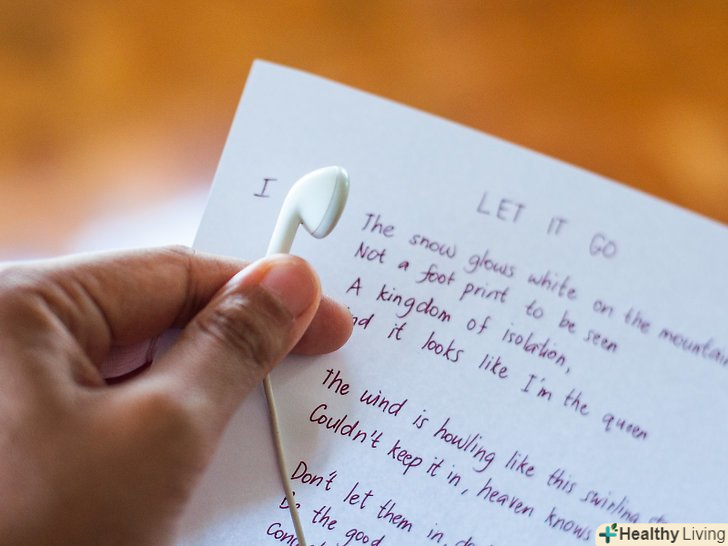 I
LET IT GO
The snow glows white on the mountain
Not a foot print to be seen
A kingdom of isolation,
it looks like I'm the queen
The wind is howling like this swirling
Couldn't keep it in, heaven knows
Don't let them in,
the good
Healthy Living